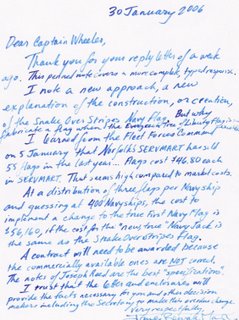 30 January 2006
Dear Captain Wheeler,
Thank you for your reply letter of a week
ago. This penned note covers a more complete, typed response.
I note a new approach, a new
explanation of the construction, or creation,
of the Snake Over Stripes Navy Flag. But why
fabricate a flag when the Evergreen Tree of Liberty flag is
I learned from the Fleet Forces Command
on 5 January that Norfolk's SERVMART has sold
55 flags in the last year... flags cost $46.80 each
in SERVMART. That seems high compared to market costs.
At a distribution of three flags per Navy ship
and guessing at 400 Navy ships, the cost to
implement a change to the true First Navy Flag is
$56,160, if the cost for the "new, true" Navy Jack is
the same as the Snake Over Stripes flag.
A contract will need to be awarded because
the commercially available ones are NOT correct.
The works of Joseph Reed are the best "specifications".
I trust that the letter and enclosures will
provide the facts necessary for you and other decision
makers including the Secretary to make this overdue change.
Very respectfully,